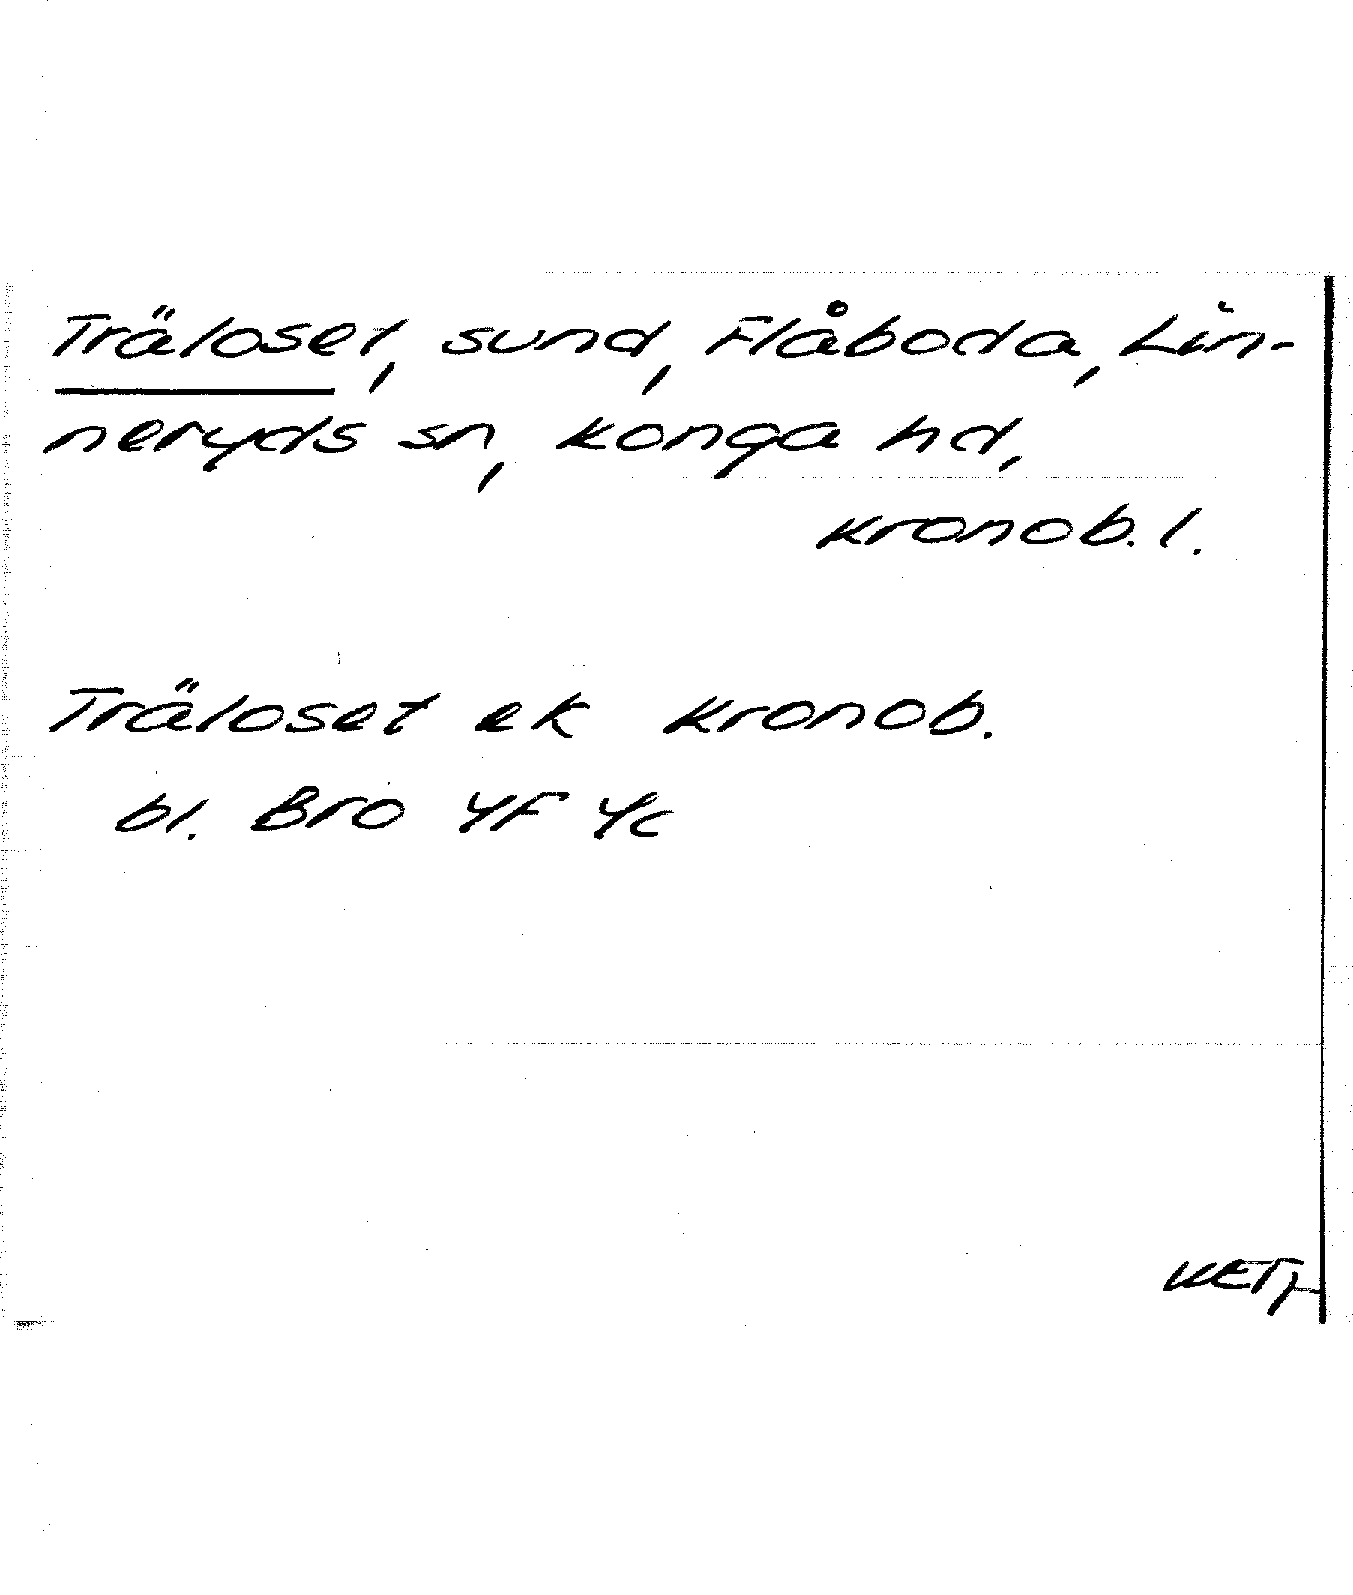 Träloset, sund, Flåboda, Lin-
neryds sn, Konga hd,
Kronob. l.
Träloset ek Kronob.
bl. Bro 4F 4c